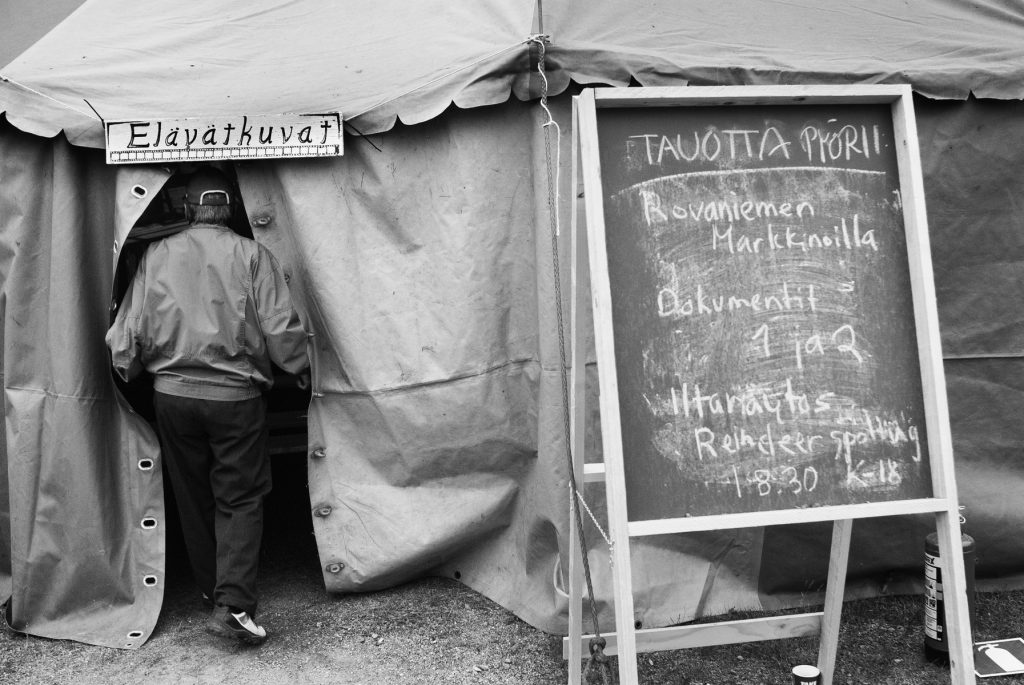 Elävätkuvat
TAUOTTA PYÖRII
Rovaniemen
Markkinoilla
Dokumentit
1 ja 2
Iltanäytös
Reindeerspotting
18.30 K-18